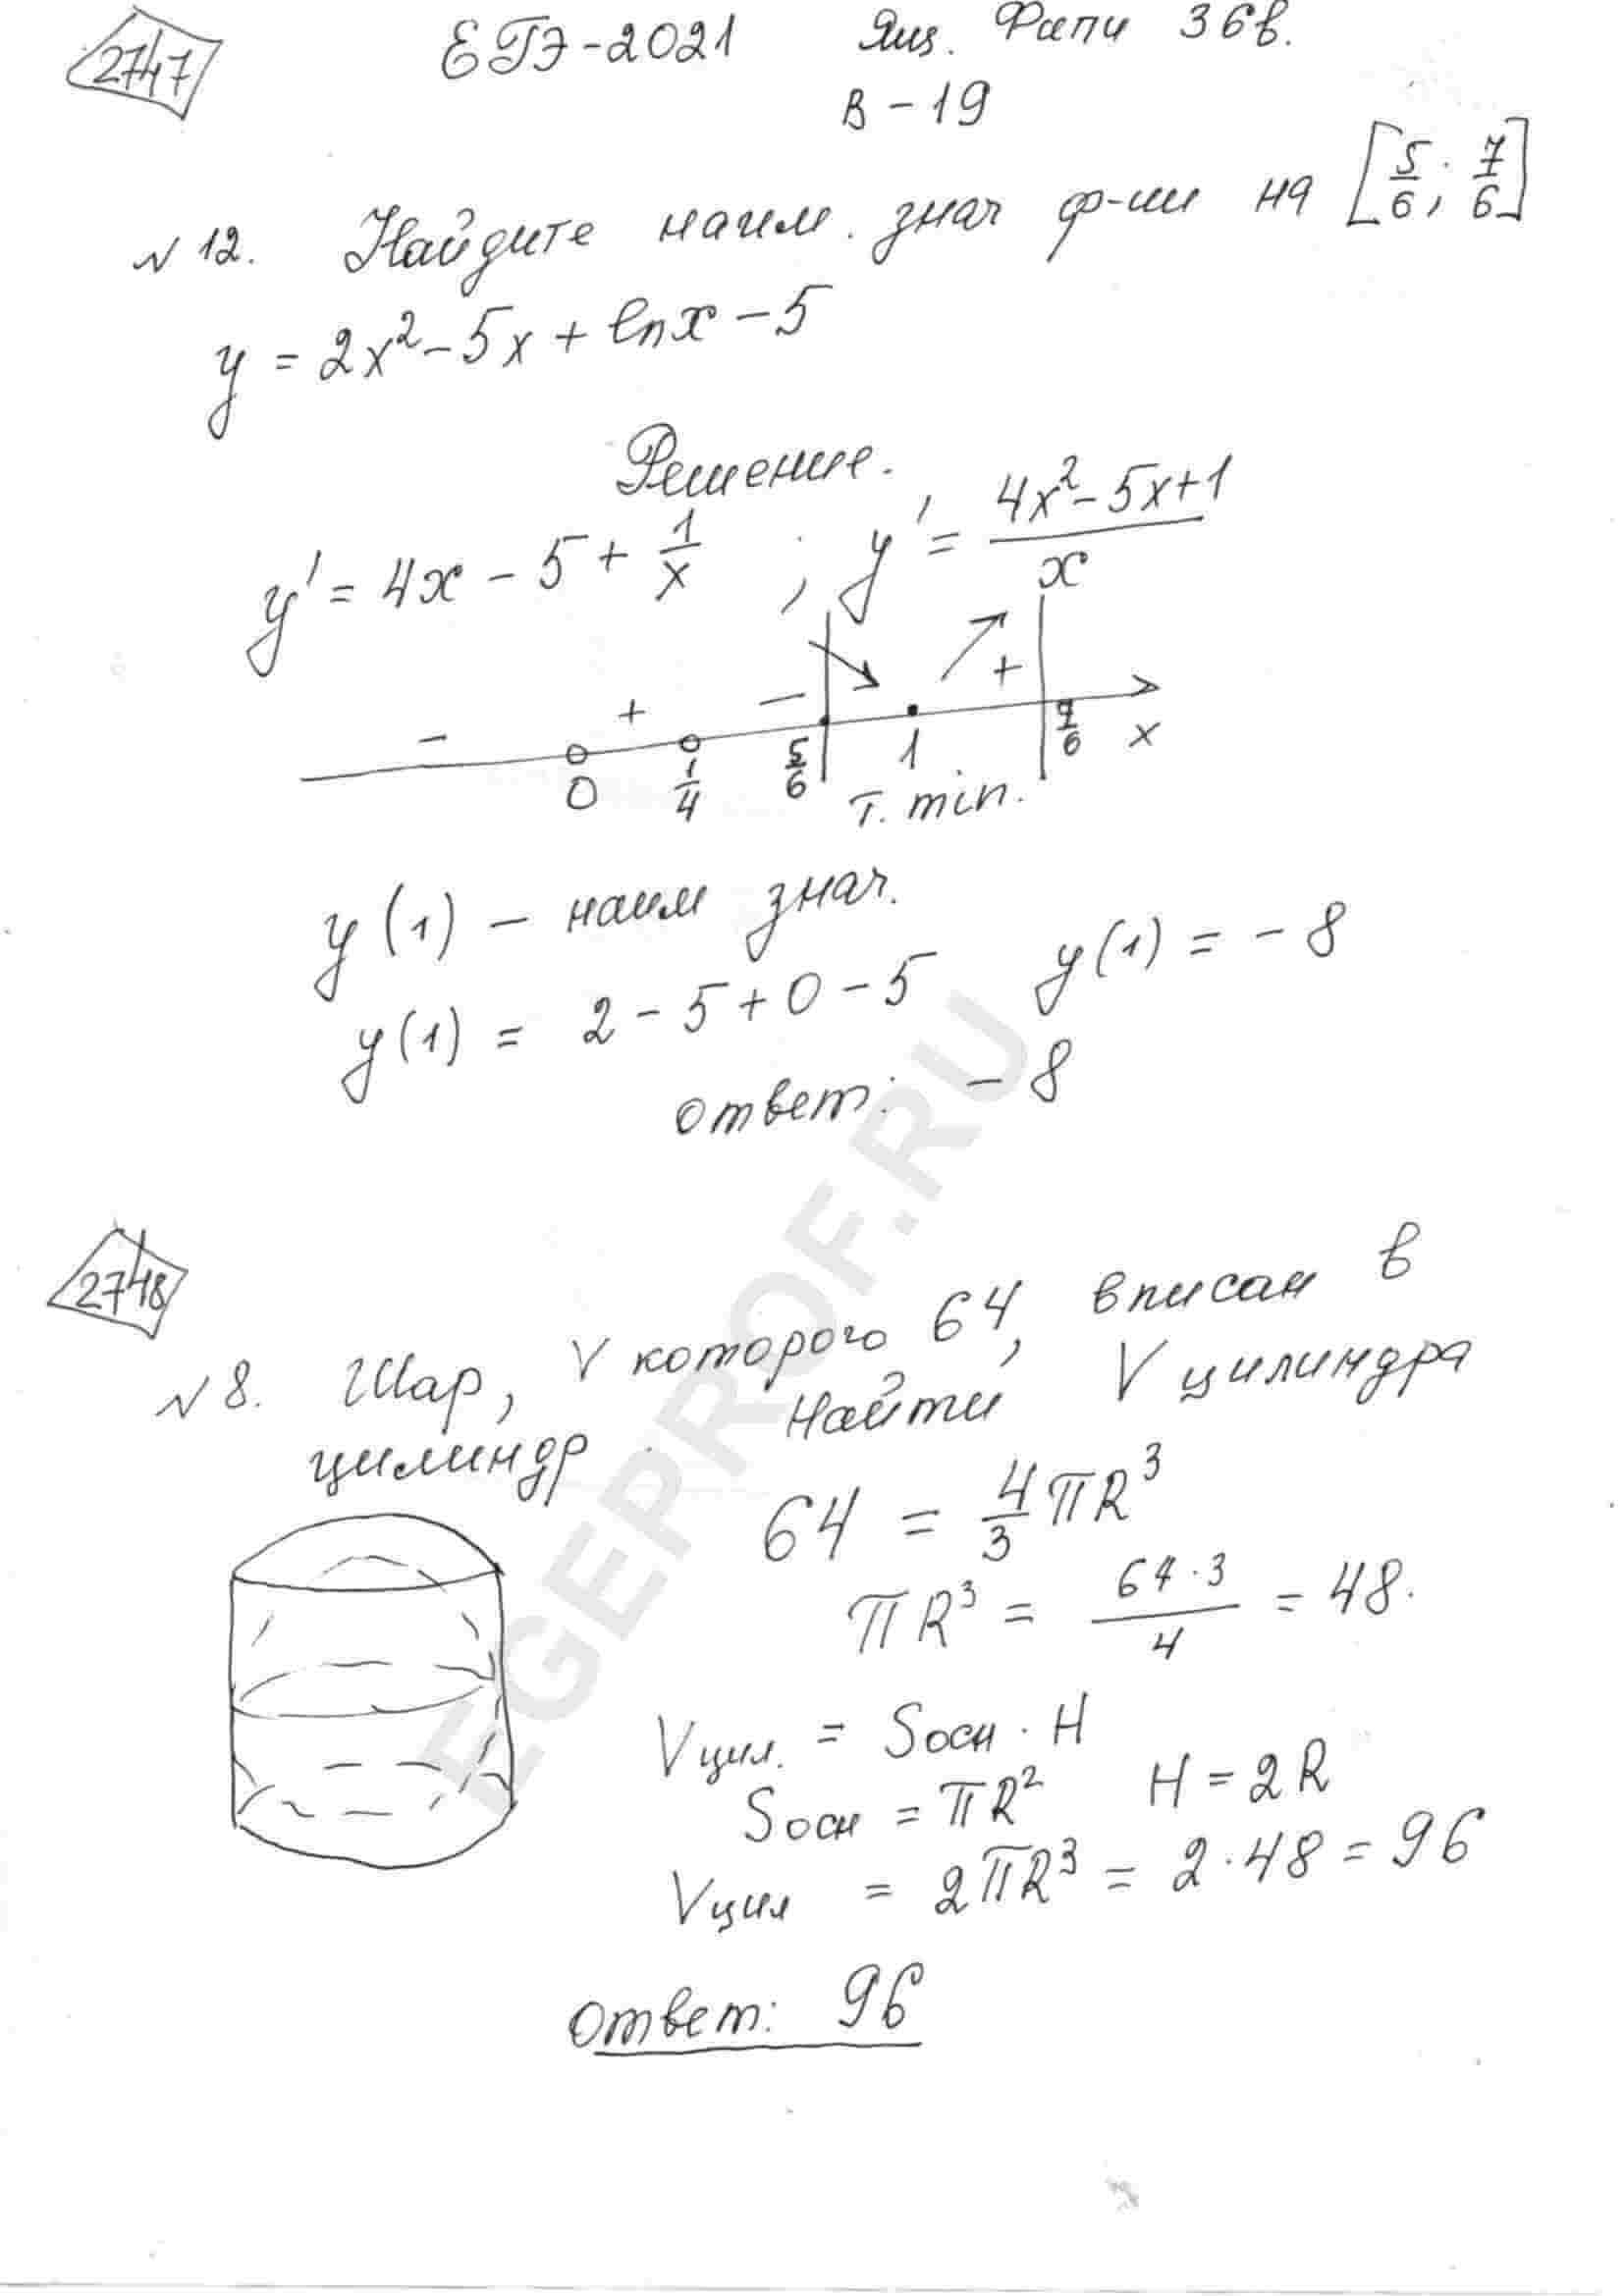 2747
ЕГЭ-2021 Ящ. Фипи 36в.
В-19
№12. Найдите наим. знач ф-ии на [5/6; 7/6]
y = 2x² - 5x + ln x - 5
Решение.
y' = 4x - 5 + 1/x ; y' = (4x² - 5x + 1)/x
- + - +
0 1/4 5/6 1 7/6 x
т. min.
y(1) - наим знач.
y(1) = 2 - 5 + 0 - 5 y(1) = - 8
ответ: - 8
2748
№8. Шар, V которого 64, вписан в
цилиндр. Найти V цилиндра
64 = 4/3 πR³
πR³ = 64·3/4 = 48.
Vцил. = Sосн · H
Sосн = πR² H = 2R
Vцил = 2πR³ = 2·48 = 96
Ответ: 96
EGEPROF.RU